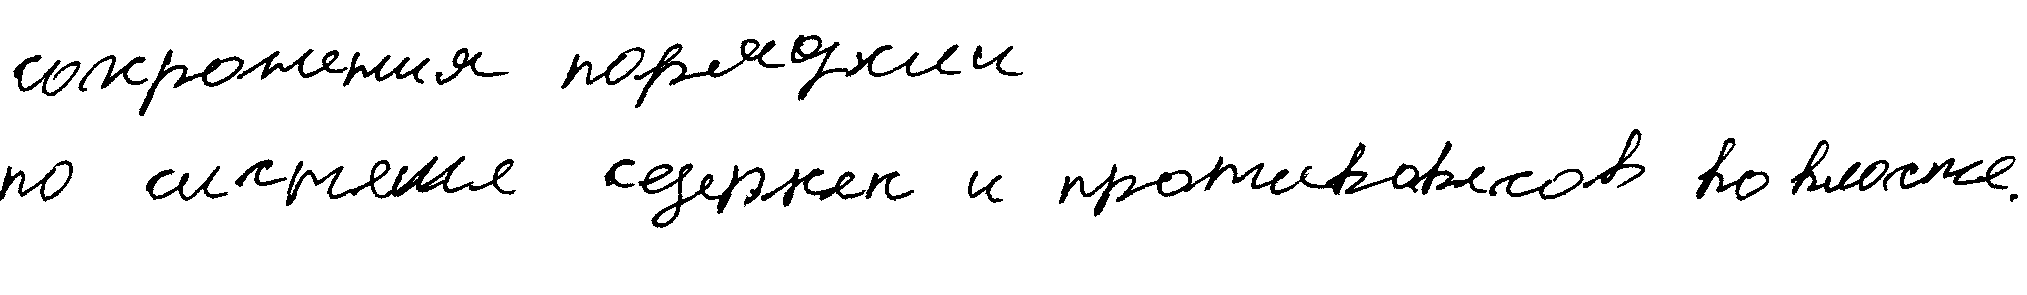 сохронения порядхии
по система сдержек и противовесов во власте.